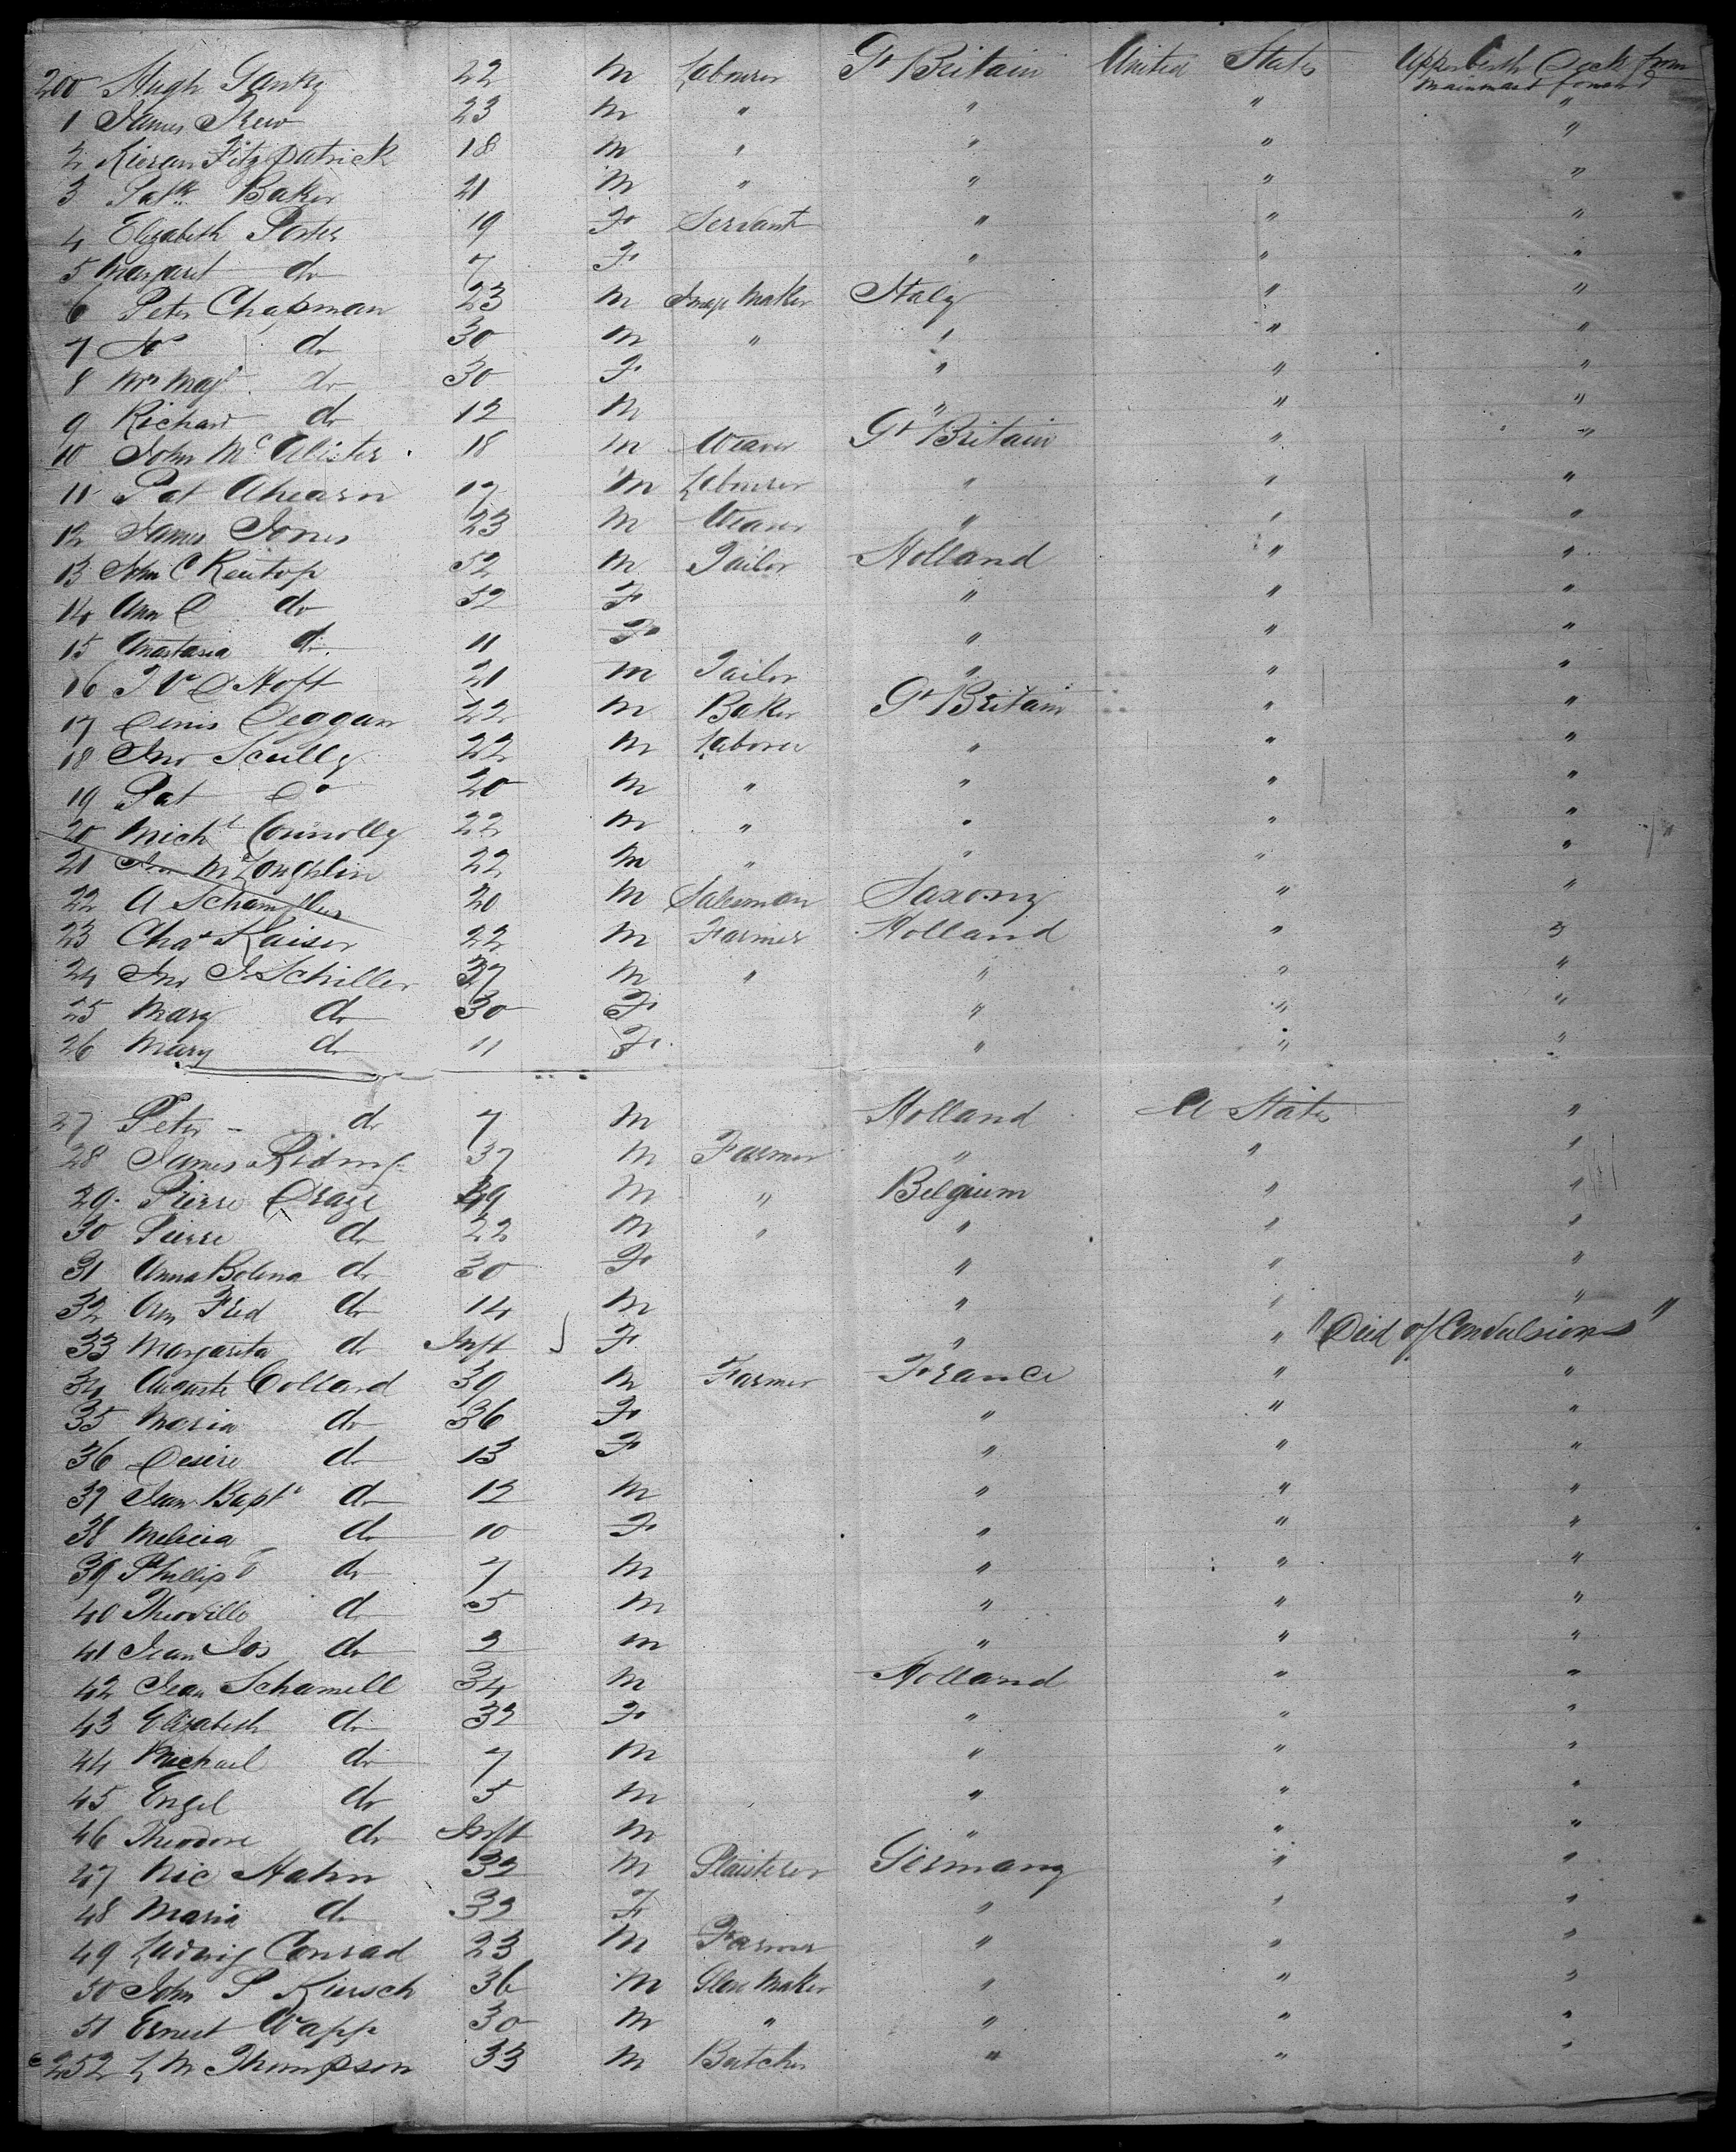 200 Hugh 22 M Labourer Gt Britain United States Upper birth Deck from Mainmast forward
1 James Trew 23 M " " " "
2 Kieran Fitzpatrick 18 M " " " "
3 Patk Baker 21 M " " " "
4 Elizabeth Porter 19 F Servant " " "
5 Margaret do 7 F " " "
6 Peter Chapman 23 M Image Maker Italy " "
7 do 30 M " " " "
8 Mrs do 30 F " " "
9 Richard do 12 M " " "
10 John McAlister 18 M Weaver Gt Britain " "
11 Pat Ahearn 17 M Labourer " " "
12 James Jones 23 M Weaver " " "
13 John C Rentop 52 M Tailor Holland " "
14 Ann C do 52 F " " "
15 Anastasia do 11 F " " "
16 Hoft 21 M Tailor " " "
17 Denis Deggan 22 M Baker Gt Britain " "
18 Jno Scully 22 M Laborer " " "
19 Pat Do 20 M " " " "
20 Michl Connolly 22 M " " " "
21 Jno McLoughlin 22 M " " " "
22 A 20 M Salesman Saxony " "
23 Chas Kaiser 22 M Farmer Holland " "
24 Jno J Schiller 37 M " " " "
25 Mary do 30 F " " "
26 Mary do 11 F " " "
27 Peter - do 7 M Holland U States "
28 James Riding 37 M Farmer " " "
29 Pierre Draze 49 M " Belgium " "
30 Pierre do 22 M " " " "
31 Anna Bolena do 30 F " " "
32 Fred do 14 M " " "
33 Margarita do Inft F " " "Died of Convulsions"
34 Auguste Collard 39 M Farmer France " "
35 Maria do 36 F " " "
36 Desire do 13 F " " "
37 Jean Bapt do 12 M " " "
38 Melicia do 10 F " " "
39 Phillip do 7 M " " "
40 Theoville do 5 M " " "
41 Jean Jos do 2 M " " "
42 Jean Schamell 34 M Holland " "
43 Elizabeth do 32 F " " "
44 Michael do 7 M " " "
45 Engel do 5 M " " "
46 Theodore do Inft M " " "
47 Nic Hahn 32 M Plaisterer Germany " "
48 Maria do 32 F " " "
49 Ludwig Conrad 23 M Farmer " " "
50 John P Kirsch 36 M Maker " " "
51 Ernest Wapp 30 M " " " "
252 L M Thompson 33 M Butcher " " "